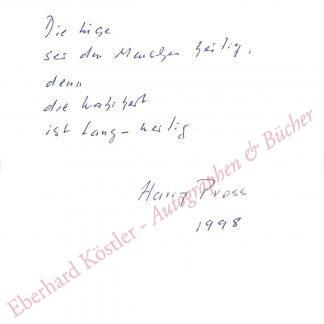 Die Lüge
sei den Menschen heilig,
denn
die Wahrheit
ist lang-weilig.
Harry Pross
1998
Eberhard Köstler - Autographen & Bücher